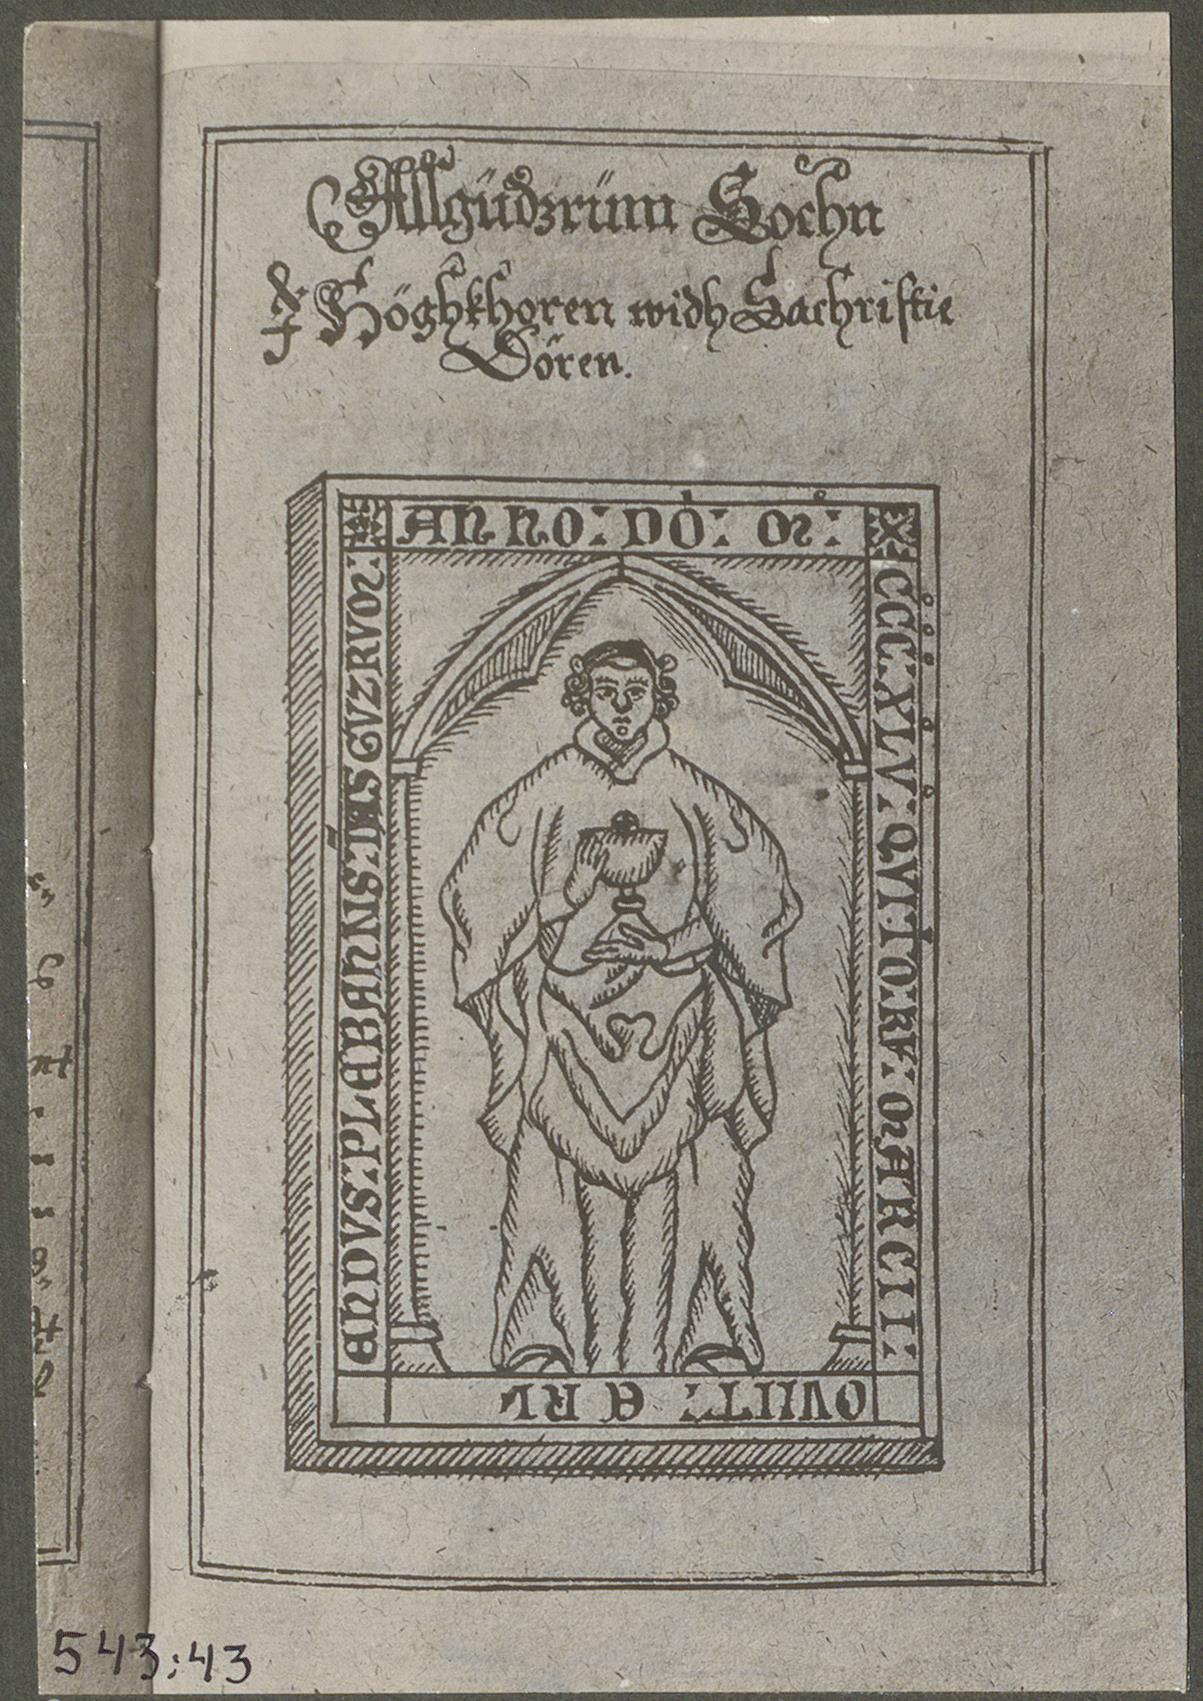 Allgüdzrüm Sochn
J Höghkhoren widh Sachristie
Dören.
ANNO: DÒ: M̊:
CCC: XLV: QVI: IORV: MARCII:
OVIIT: ERL
ENDVS: PLEBANIS: DIS GVZRVM:
543:43